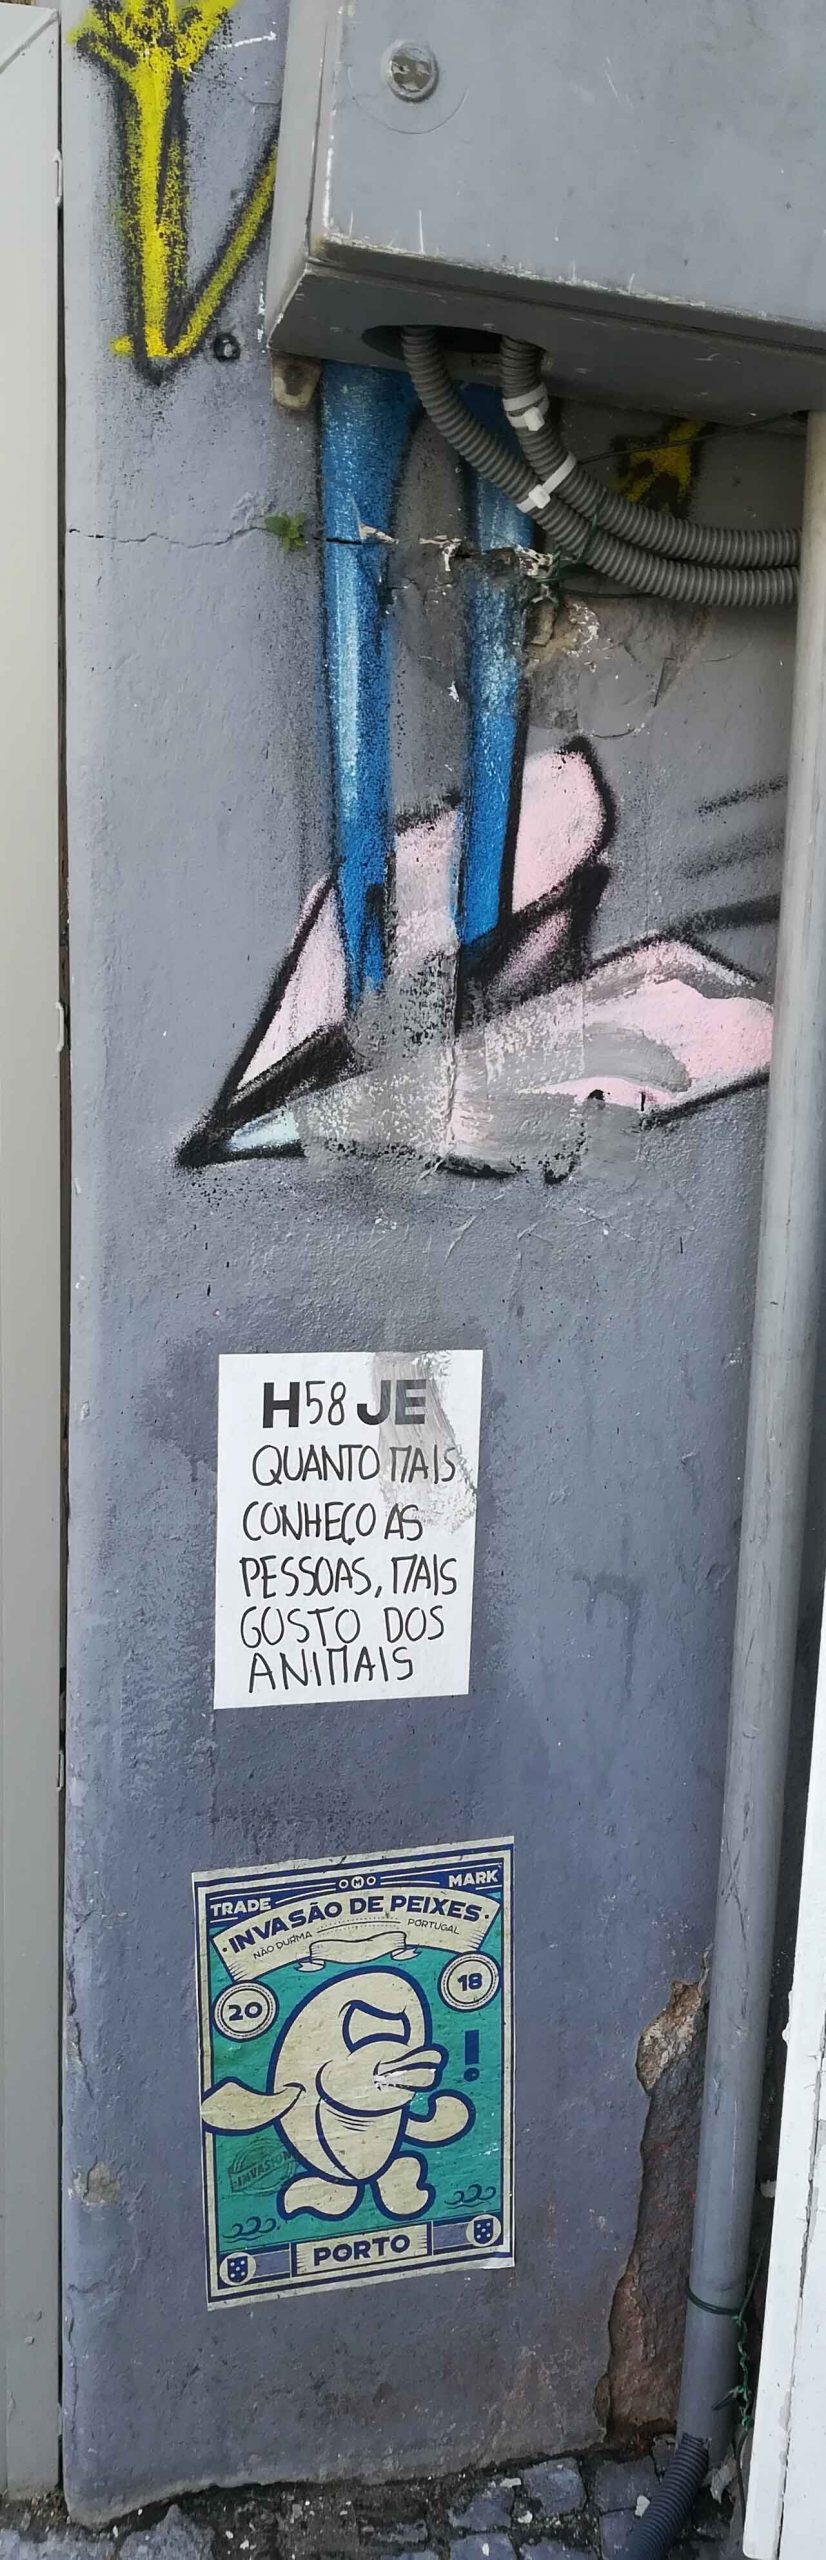 H58JE
QUANTO MAIS
CONHEÇO AS
PESSOAS, MAIS
GOSTO DOS
ANIMAIS
TRADE
MARK
INVASÃO DE PEIXES
NÃO DURMA
PORTUGAL
20
18
!
INVASION
PORTO